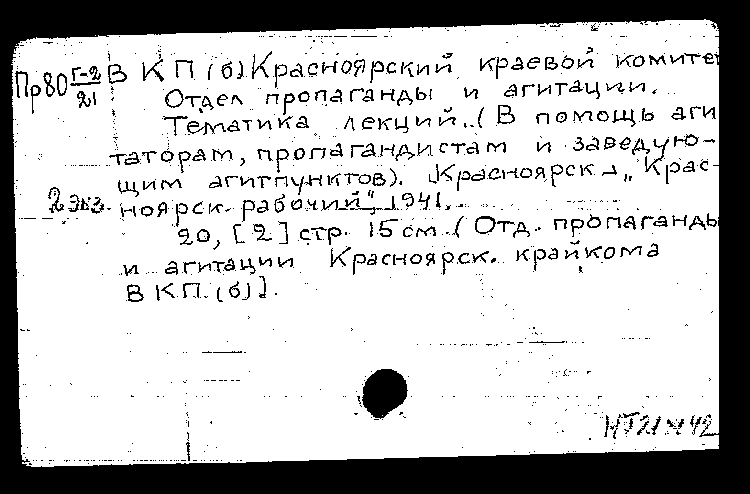 Пр80 Г-2/21 В К П (б) Красноярский краевой комите
Отдел пропаганды и агитации.
Тематика лекций. (В помощь аги
таторам, пропагандистам и заведую-
щим агитпунктов). Красноярск, „Крас-
2 экз. ноярск. рабочий", 1941.
20, [2] стр. 15 см. (Отд. пропаганды
и агитации Красноярск. крайкома
В К П. (б)].